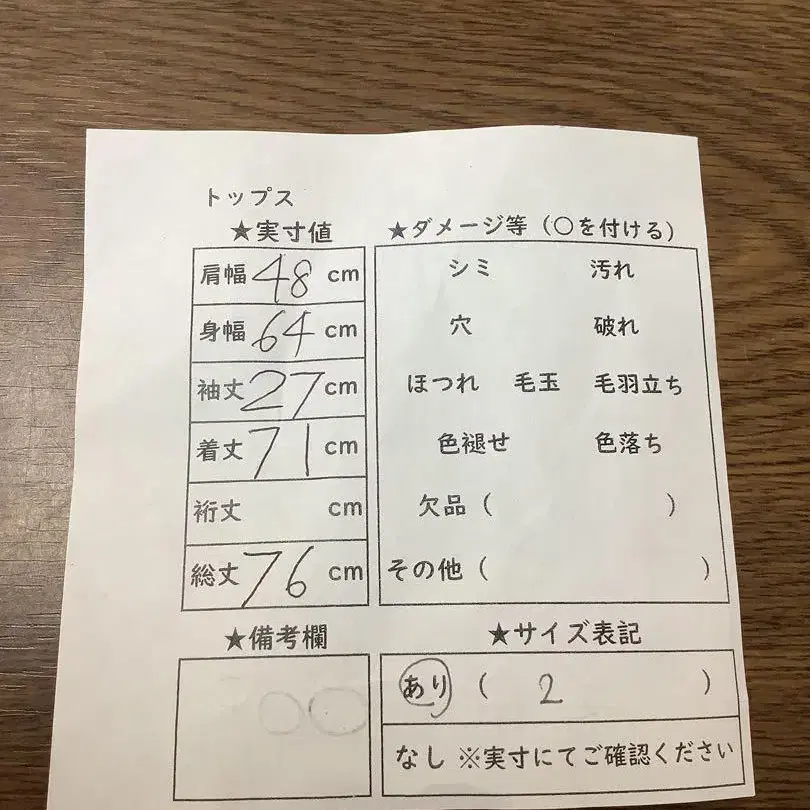 トップス
★実寸値
肩幅 48 cm
身幅 64 cm
袖丈 27 cm
着丈 71 cm
裄丈 cm
総丈 76 cm
★ダメージ等（○を付ける）
シミ 汚れ
穴 破れ
ほつれ 毛玉 毛羽立ち
色褪せ 色落ち
欠品（ ）
その他（ ）
★備考欄
★サイズ表記
あり（ 2 ）
なし ※実寸にてご確認ください